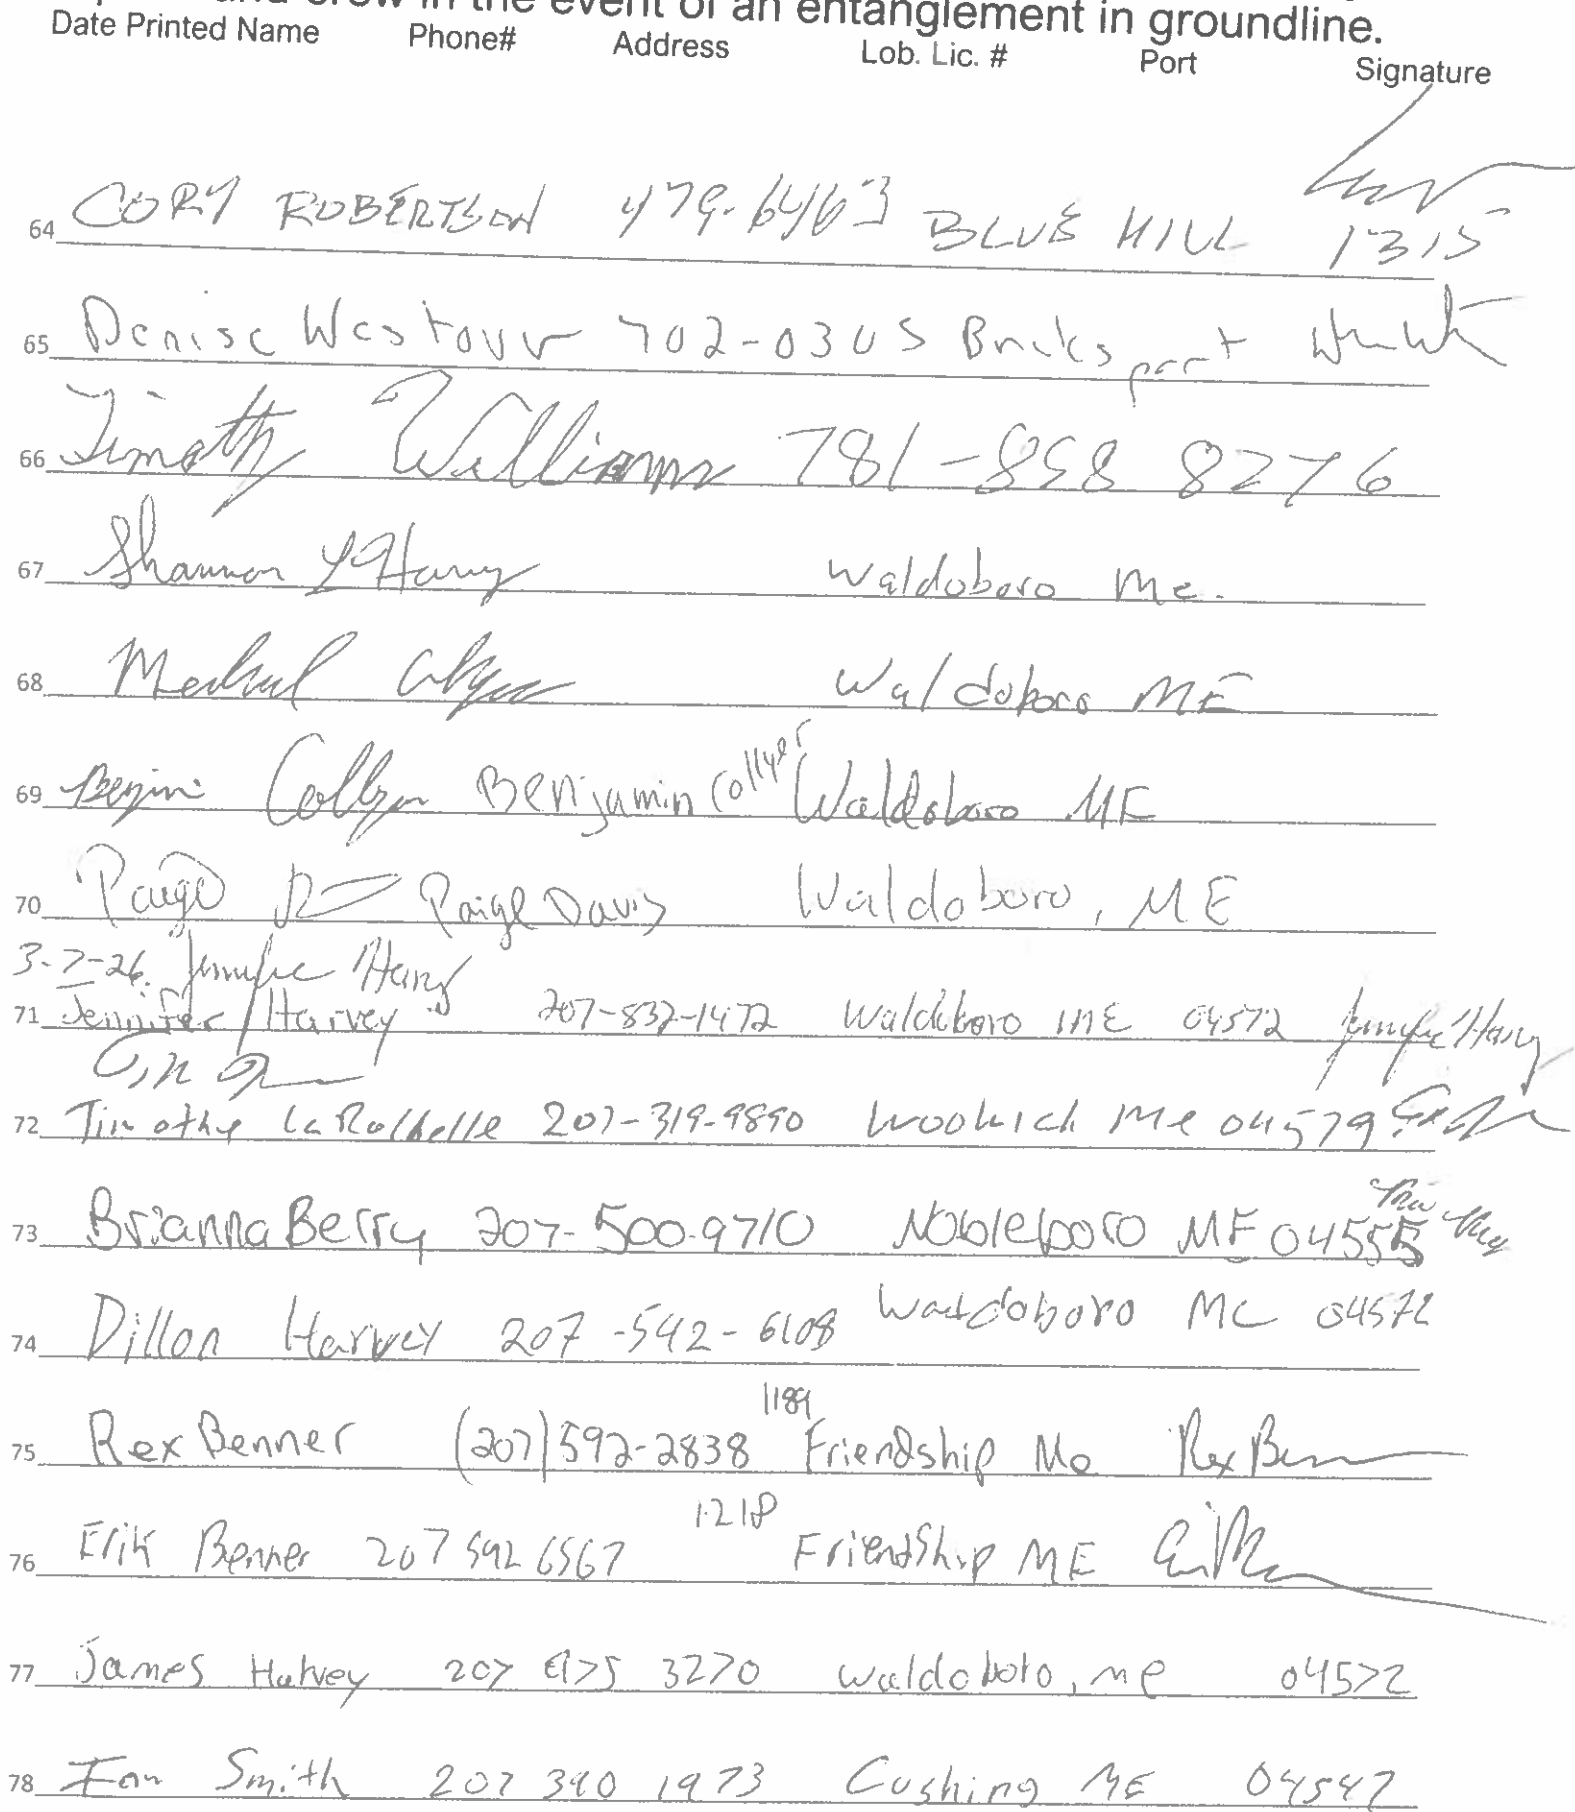 and crew in the event of an entanglement in groundline.
Date Printed Name Phone# Address Lob. Lic. # Port Signature
64 CORY ROBERTSON 479-6463 BLUE HILL 1315
65 Denise Westover 702-0305 Bucksport
66 Timothy Williams 781-858 8276
67 Shannon Harvey Waldoboro Me.
68 Waldoboro ME
69 Collyer Benjamin Collyer Waldoboro ME
70 Paige Paige Davis Waldoboro, ME
3-7-26. Jennifer Harvey
71 Jennifer Harvey 207-832-1472 Waldoboro ME 04572 Jennifer Harvey
72 Timothy LaRochelle 207-319-9890 Woolwich Me 04579
73 Brianna Berry 207-500-9710 Nobleboro ME 04555
74 Dillon Harvey 207-542-6108 Waldoboro Me 04572
1189
75 Rex Benner (207) 592-2838 Friendship Me Rex Benner
1218
76 Erik Benner 207 592 6567 Friendship ME
77 James Harvey 207 975 3270 waldoboro, me 04572
78 Ian Smith 207 390 1973 Cushing ME 04547